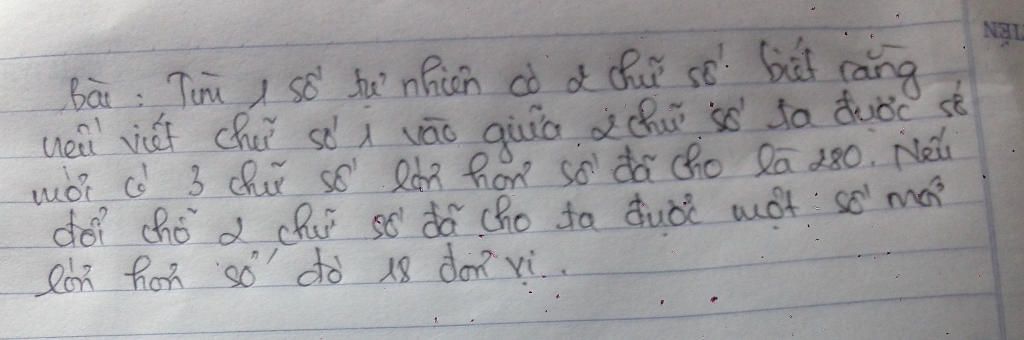 Bài : Tìm 1 số tự nhiên có 2 chữ số biết rằng
nếu viết chữ số 1 vào giữa 2 chữ số ta được số
mới có 3 chữ số lớn hơn số đã cho là 280. Nếu
đổi chỗ 2 chữ số đã cho ta được một số mới
lớn hơn số đó 18 đơn vị.